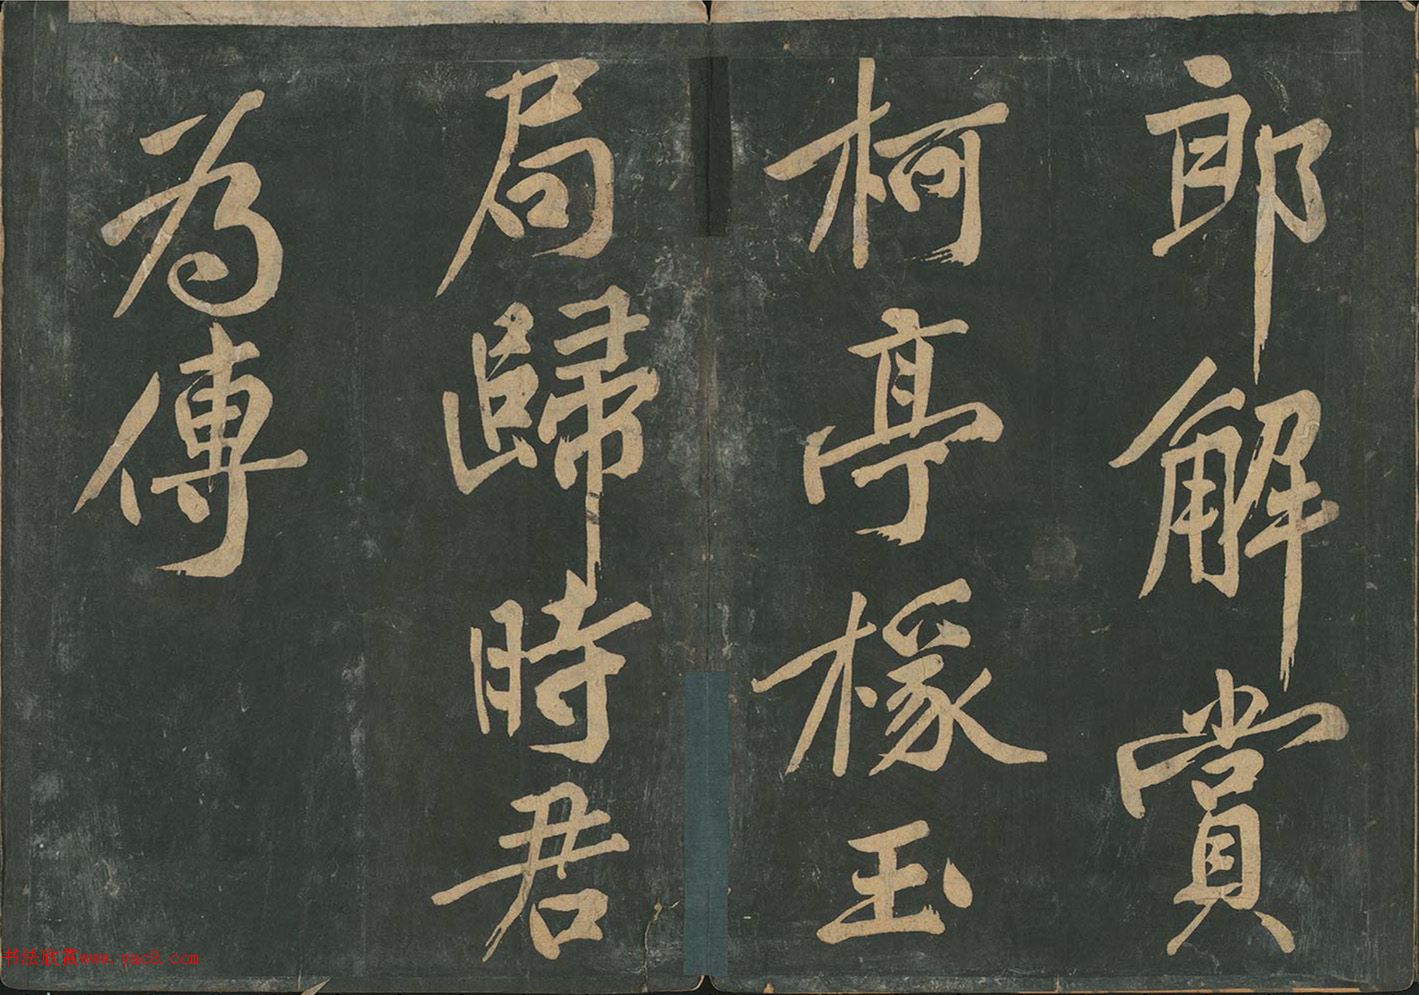 郎解賞
柯亭椽玉
局歸時君
為傳
书法欣赏www.yac8.com